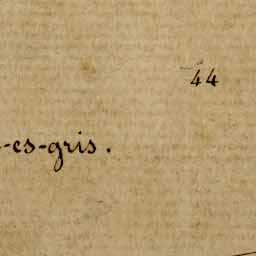 44
-es-gris.